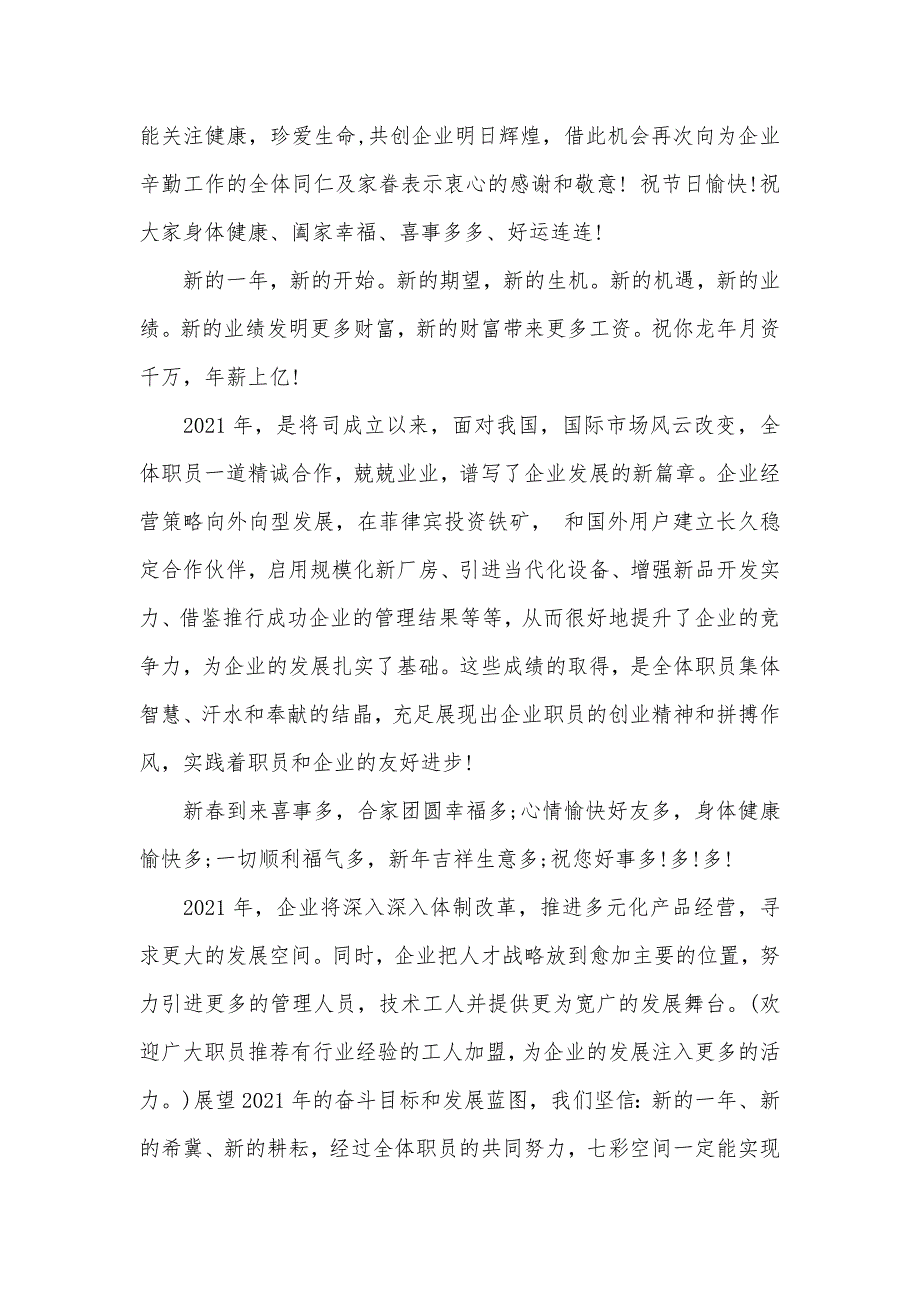 能关注健康，珍爱生命,共创企业明日辉煌，借此机会再次向为企业
辛勤工作的全体同仁及家眷表示衷心的感谢和敬意! 祝节日愉快!祝
大家身体健康、阖家幸福、喜事多多、好运连连!
新的一年，新的开始。新的期望，新的生机。新的机遇，新的业
绩。新的业绩发明更多财富，新的财富带来更多工资。祝你龙年月资
千万，年薪上亿!
2021 年，是将司成立以来，面对我国，国际市场风云改变，全
体职员一道精诚合作，兢兢业业，谱写了企业发展的新篇章。企业经
营策略向外向型发展，在菲律宾投资铁矿， 和国外用户建立长久稳
定合作伙伴，启用规模化新厂房、引进当代化设备、增强新品开发实
力、借鉴推行成功企业的管理结果等等，从而很好地提升了企业的竞
争力，为企业的发展扎实了基础。这些成绩的取得，是全体职员集体
智慧、汗水和奉献的结晶，充足展现出企业职员的创业精神和拼搏作
风，实践着职员和企业的友好进步!
新春到来喜事多，合家团圆幸福多;心情愉快好友多，身体健康
愉快多;一切顺利福气多，新年吉祥生意多;祝您好事多!多!多!
2021 年，企业将深入深入体制改革，推进多元化产品经营，寻
求更大的发展空间。同时，企业把人才战略放到愈加主要的位置，努
力引进更多的管理人员，技术工人并提供更为宽广的发展舞台。(欢
迎广大职员推荐有行业经验的工人加盟，为企业的发展注入更多的活
力。)展望 2021 年的奋斗目标和发展蓝图，我们坚信：新的一年、新
的希冀、新的耕耘，经过全体职员的共同努力，七彩空间一定能实现